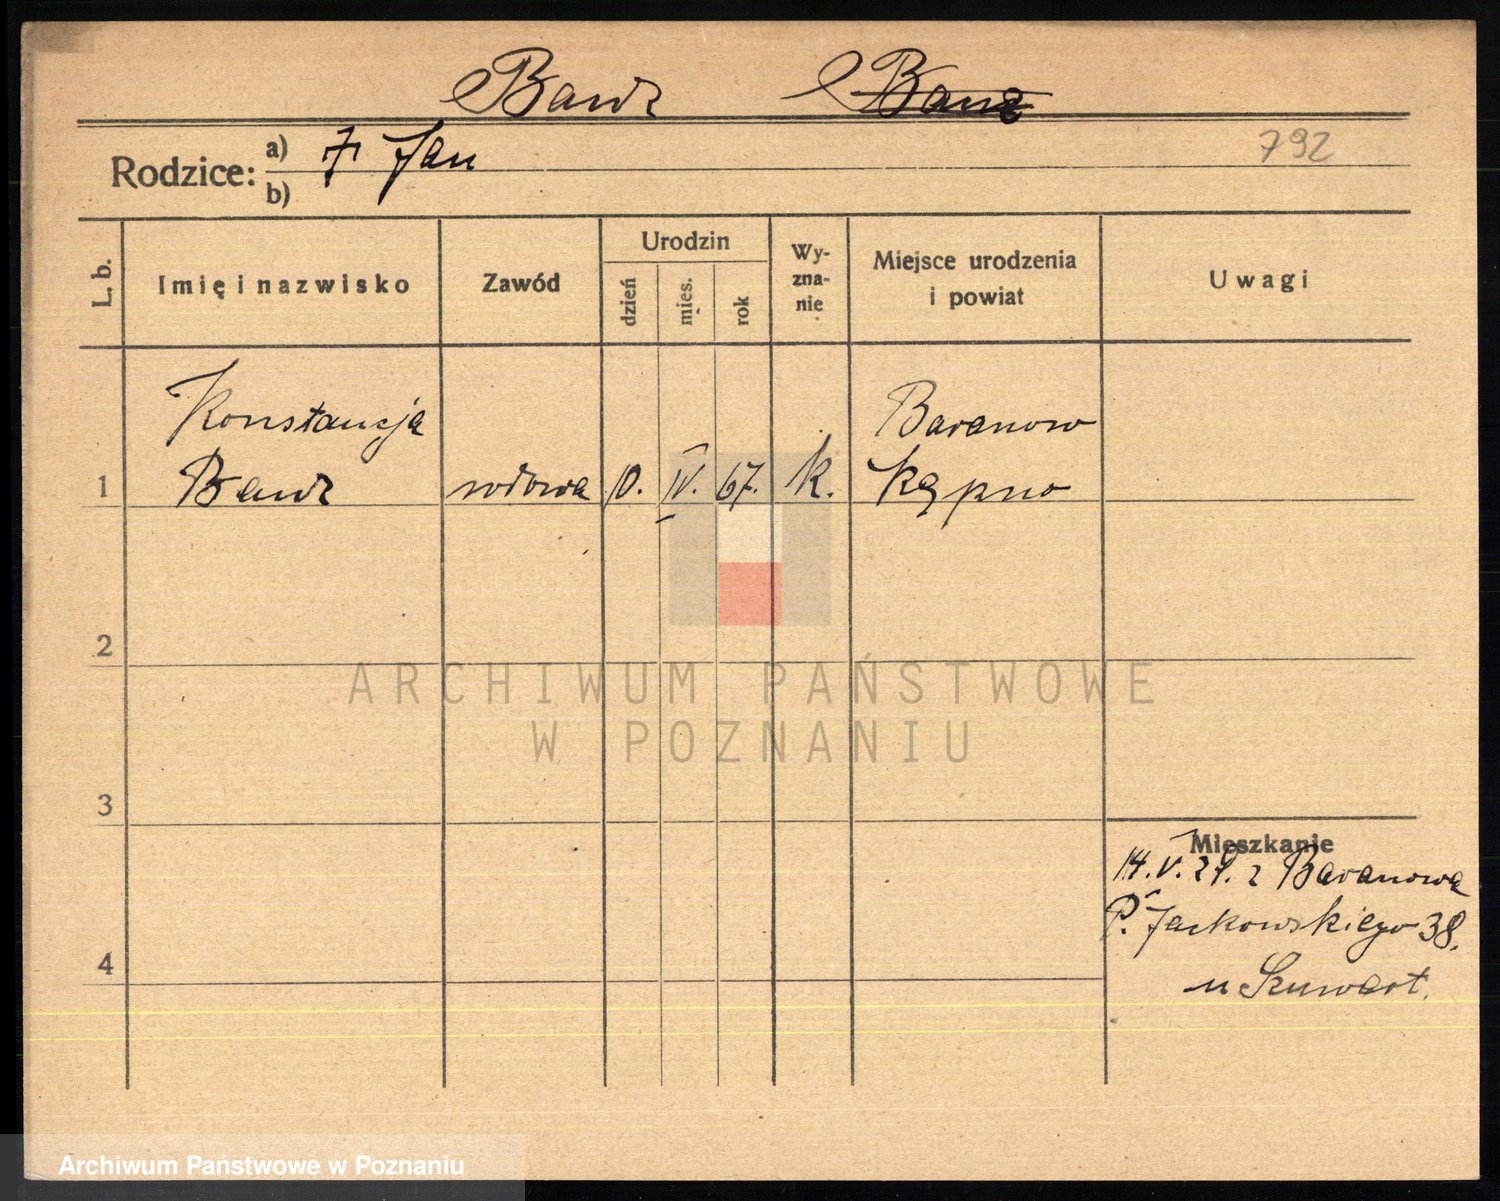 Bawz Banz
792
Rodzice: a) † Jan
b)
L. b. Imię i nazwisko Zawód Urodzin dzień mies. rok Wyznanie Miejsce urodzenia i powiat Uwagi
Konstancja Baranow
1 Bawz wdowa 10. IV. 67. k. Kępno
2
ARCHIWUM PAŃSTWOWE
W POZNANIU
3
Mieszkanie
14. V. 29. z Baranowa
P. Jackowskiego 38.
4
u Szuwart.
Archiwum Państwowe w Poznaniu